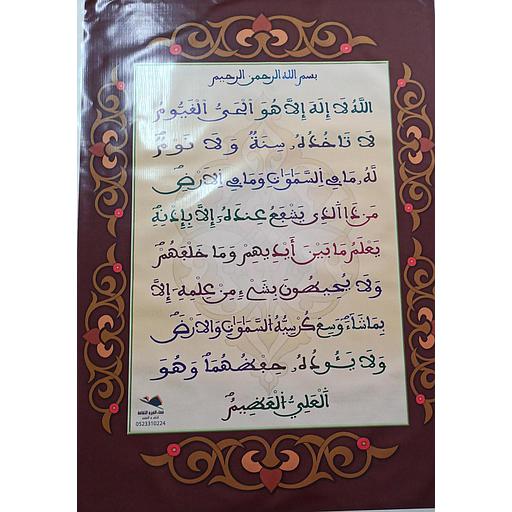 بسم الله الرحمن الرحيم
اللَّهُ لَا إِلَهَ إِلَّا هُوَ الْحَيُّ الْقَيُّومُ
لَا تَاخُذُهُ سِنَةٌ وَلَا نَوْمٌ
لَّهُ مَا فِي السَّمَاوَاتِ وَمَا فِي الْأَرْضِ
مَن ذَا الَّذِي يَشْفَعُ عِندَهُ إِلَّا بِإِذْنِهِ
يَعْلَمُ مَا بَيْنَ أَيْدِيهِمْ وَمَا خَلْفَهُمْ
وَلَا يُحِيطُونَ بِشَيْءٍ مِنْ عِلْمِهِ إِلَّا
بِمَا شَاءَ وَسِعَ كُرْسِيُّهُ السَّمَاوَاتِ وَالْأَرْضَ
وَلَا يَئُودُهُ حِفْظُهُمَا وَهُوَ
الْعَلِيُّ الْعَظِيمُ
0523310224